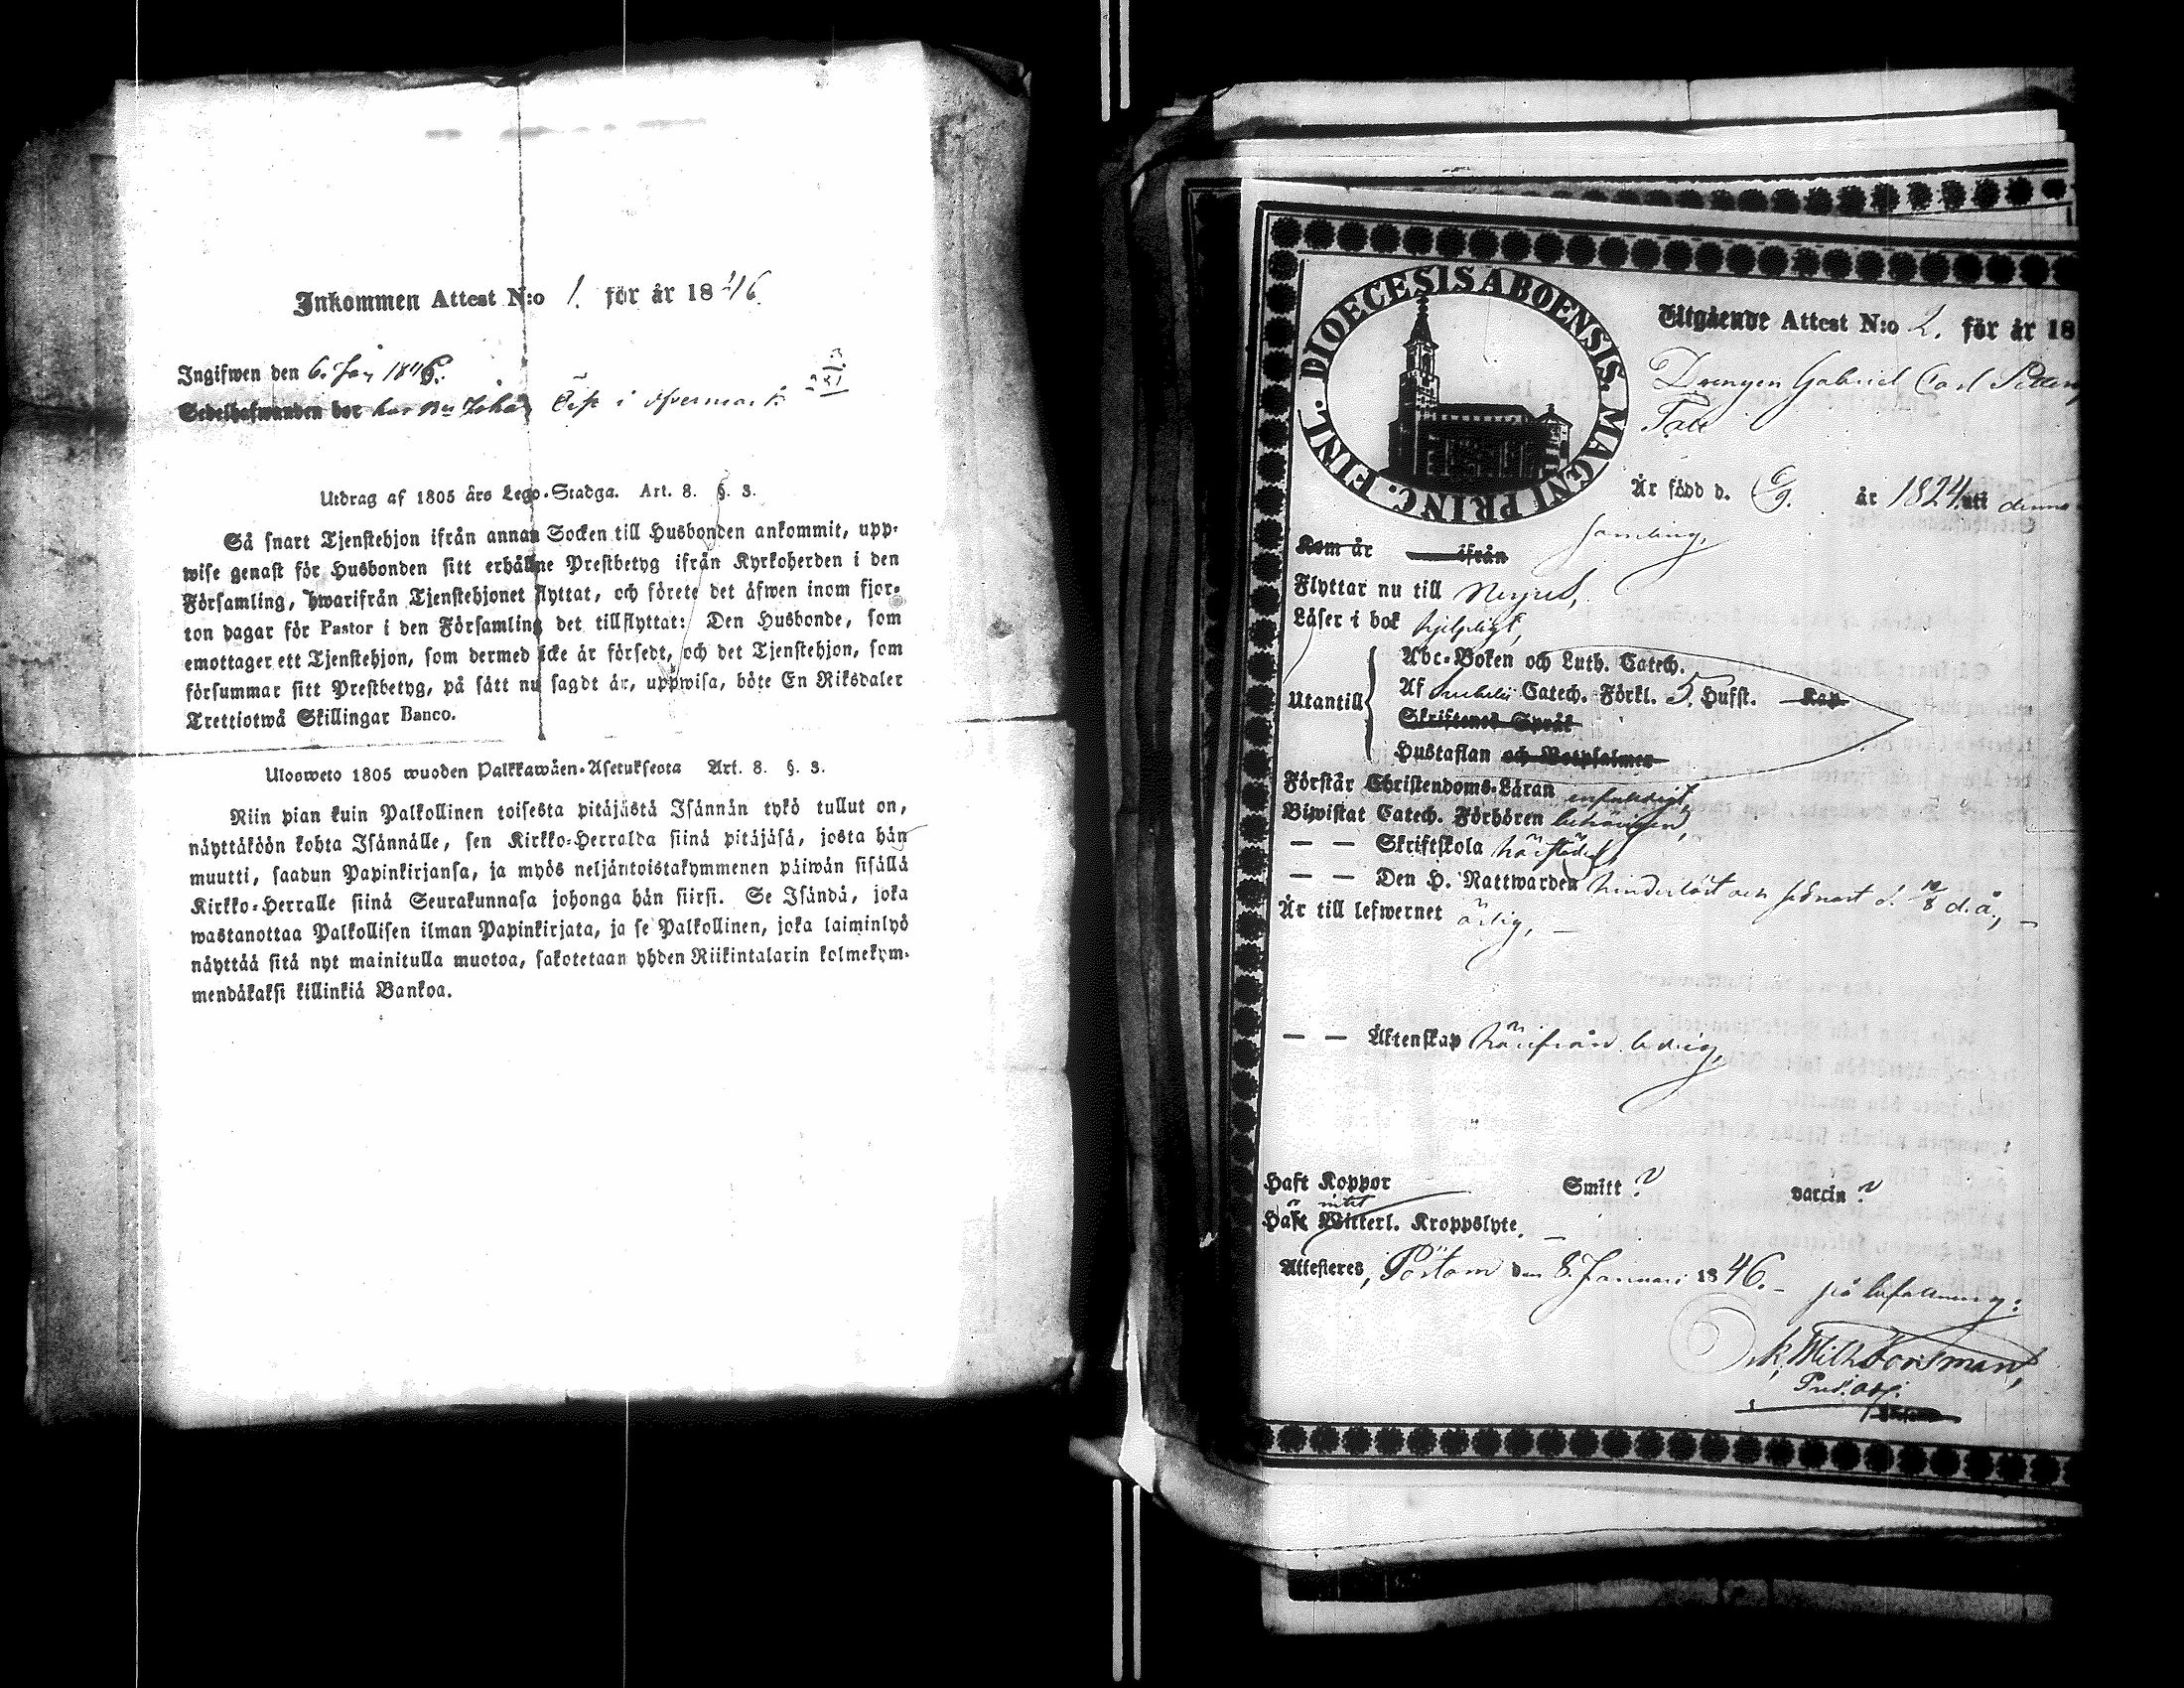 Inkommen Attest N:o 1. för år 1846.
Ingifwen den 6. Jan 1846.
Sedelhafwanden bor hos Bn Johan i Öfvermark
Utdrag af 1805 års Lego-Stadga. Art. 8. §. 3.
Så snart Tjenstehjon ifrån annan Socken till Husbonden ankommit, upp-
wise genast för Husbonden sitt erhållne Prestbetyg ifrån Kyrkoherden i den
Församling, hwarifrån Tjenstehjonet flyttat, och förete det äfwen inom fjor-
ton dagar för Pastor i den Församling det tillflyttat: Den Husbonde, som
emottager ett Tjenstehjon, som dermed icke är försedt, och det Tjenstehjon, som
försummar sitt Prestbetyg, på sätt nu sagdt är, uppwisa, böte En Riksdaler
Trettiotwå Skillingar Banco.
Ulosweto 1805 wuoden Palkkawäen-Asetuksesta Art. 8. §. 3.
Niin pian kuin Palkollinen toisesta pitäjästä Isännän tykö tullut on,
näyttäköön kohta Isännälle, sen Kirkko-Herralda siinä pitäjäsä, josta hän
muutti, saadun Papinkirjansa, ja myös neljäntoistakymmenen päiwän sisällä
Kirkko-Herralle siinä Seurakunnasa johonga hän siirsi. Se Isändä, joka
wastanottaa Palkollisen ilman Papinkirjata, ja se Palkollinen, joka laiminlyö
näyttää sitä nyt mainitulla muotoa, sakotetaan yhden Riikintalarin kolmekym-
mendäkaksi killinkiä Bankoa.
DIOECESIS ABOENSIS. MAGNI PRINC. FINL.
Utgående Attest N:o 2. för år 18
Drengen Gabriel Carl Petter
Är född d. 9. år 1824 uti denna
Kom år ifrån samling,
Flyttar nu till
Läser i bok hjelpligt,
Abc-Boken och Luth. Catech.
Utantill Af Svebelii Catech. Förkl. 5. Hufst. Kap
Skriftenes Språk
Hustaflan och Botpsalmer
Förstår Christendoms-Läran enfaldigt,
Biwistat Catech. Förhören behörigen,
— — Skriftskola härstädes,
— — Den H. Nattwarden hinderlöst och sednast d. 10/8 d.å.,
Är till lefwernet ärlig, —
— — Äktenskap härifrån ledig,
Haft Koppor Smitt ? vaccin ?
intet
Haft Witterl. Kroppslyte. —
Attesteres, Pörtom den 8. Januari 1846. — på befallning:
K. Wilh. Forsman,
Pred. adj.